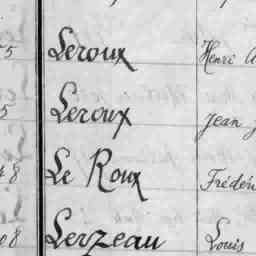 55 Leroux Henri
5 Leroux Jean
48 Le Roux Frédéri
08 Lerzeau Louis